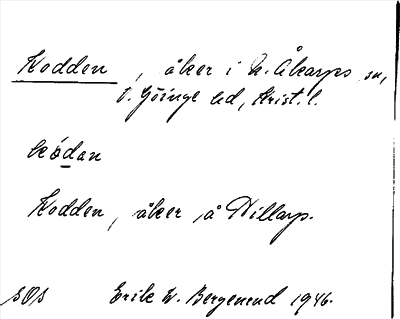 Kodden, åker i N. Åkarps sn,
V. Göinge hd, Krist. l.
kódan
Kodden, åker å Dillarp.
SOS Erik W. Bergenrud 1946.